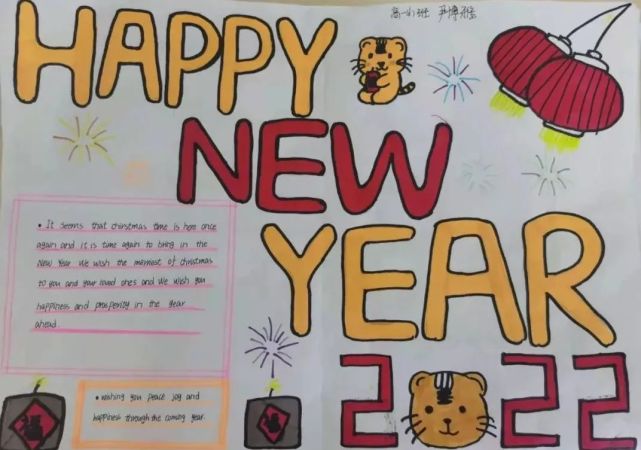 高一(1)班 尹博雅
HAPPY
NEW
YEAR
2022
• It seems that christmas time is here once
again and it is time again to bring in the
New Year We wish the merriest of christmas
to you and your loved ones and We wish you
happiness and prosperity in the year
ahead.
• wishing you peace joy and
happiness through the coming year.
福
福